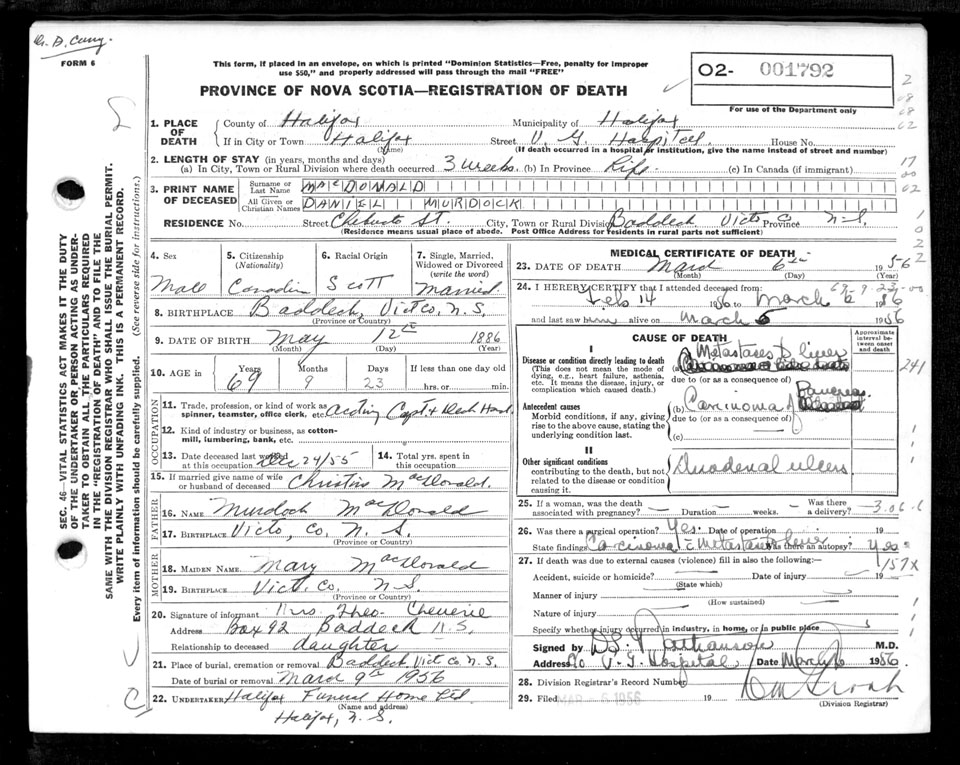 Dr. D. Curry.
FORM 6
This form, if placed in an envelope, on which is printed "Dominion Statistics—Free, penalty for improper
use $50," and properly addressed will pass through the mail "FREE"
PROVINCE OF NOVA SCOTIA—REGISTRATION OF DEATH
02- 001792
For use of the Department only
1. PLACE OF DEATH
County of Halifax Municipality of Halifax
If in City or Town Halifax Street V. G. Hospital House No.
(Name) (If death occurred in a hospital or institution, give the name instead of street and number)
2. LENGTH OF STAY (in years, months and days)
(a) In City, Town or Rural Division where death occurred 3 weeks (b) In Province Life (c) In Canada (if immigrant)
3. PRINT NAME OF DECEASED
Surname or Last Name MACDONALD
All Given or Christian Names DANIEL MURDOCK
RESIDENCE No. Street Chebucto St. City, Town or Rural Division Baddeck Vict. Co. Province N.S.
(Residence means usual place of abode. Post Office Address for residents in rural parts not sufficient)
4. Sex Male
5. Citizenship (Nationality) Canadian
6. Racial Origin Scott
7. Single, Married, Widowed or Divorced (write the word) Married
8. BIRTHPLACE Baddeck, Vict Co, N.S.
(Province or Country)
9. DATE OF BIRTH May 12th 1886
(Month) (Day) (Year)
10. AGE in Years 69 Months 9 Days 23 If less than one day old hrs. or min.
OCCUPATION
11. Trade, profession, or kind of work as spinner, teamster, office clerk, etc. Acting Capt & Deck Hand
12. Kind of industry or business, as cotton-mill, lumbering, bank, etc.
13. Date deceased last worked at this occupation Dec 24/55
14. Total yrs. spent in this occupation
15. If married give name of wife or husband of deceased Christins MacDonald
FATHER
16. Name Murdoch MacDonald
17. Birthplace Victo, Co, N.S.
(Province or Country)
MOTHER
18. Maiden Name Mary MacDonald
19. Birthplace Vict. Co. N.S.
(Province or Country)
20. Signature of informant Mrs. Theo. Cheverie
Address Box 92 Baddeck N.S.
Relationship to deceased daughter
21. Place of burial, cremation or removal Baddeck Vict Co N.S.
Date of burial or removal March 9th 1956
22. UNDERTAKER Halifax Funeral Home Ltd
(Name and address)
Halifax, N.S.
MEDICAL CERTIFICATE OF DEATH
23. DATE OF DEATH March 6th 1956
(Month) (Day) (Year)
24. I HEREBY CERTIFY that I attended deceased from:
Feb 14 1956 to March 6 1956
and last saw him alive on March 5 1956
CAUSE OF DEATH
Approximate interval between onset and death
I
Disease or condition directly leading to death
(This does not mean the mode of dying, e.g., heart failure, asthenia, etc. It means the disease, injury, or complication which caused death.)
(a) Metastases to liver
due to (or as a consequence of)
Antecedent causes
Morbid conditions, if any, giving rise to the above cause, stating the underlying condition last.
(b) Carcinoma of Pancreas
due to (or as a consequence of)
(c)
II
Other significant conditions
contributing to the death, but not related to the disease or condition causing it.
Duodenal ulcers
25. If a woman, was the death associated with pregnancy? Duration weeks. Was there a delivery?
26. Was there a surgical operation? Yes. Date of operation 19
State findings Carcinoma c Metastasis liver Was there an autopsy? Yes
27. If death was due to external causes (violence) fill in also the following:—
157x
Accident, suicide or homicide? Date of injury 19
(State which)
Manner of injury
(How sustained)
Nature of injury
Specify whether injury occurred in industry, in home, or in public place
Signed by M.D.
Address c/o V. G. Hospital Date March 6 1956
28. Division Registrar's Record Number
29. Filed MAR 6 1956 19
(Division Registrar)
SEC. 46—VITAL STATISTICS ACT MAKES IT THE DUTY
OF THE UNDERTAKER OR PERSON ACTING AS UNDER-
TAKER TO OBTAIN ALL THE PARTICULARS REQUIRED
IN THE "REGISTRATION OF DEATH" AND TO FILE THE
SAME WITH THE DIVISION REGISTRAR WHO SHALL ISSUE THE BURIAL PERMIT.
WRITE PLAINLY WITH UNFADING INK. THIS IS A PERMANENT RECORD.
Every item of information should be carefully supplied. (See reverse side for instructions.)